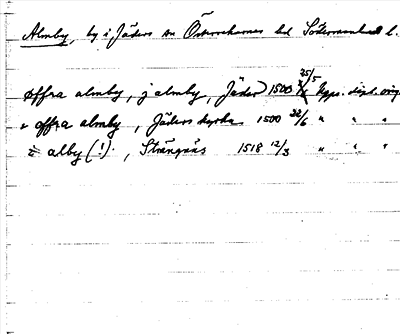 Almby, by i Jäders sn Österrekarnes hd Södermanland l.
øffra almby, j almby, Jäder 1500 25/5 Upps. dipl. orig
" offra almby, Jäders kyrka 1500 /6 " " "
i alby (!), Strängnäs 1518 12/3 " " "